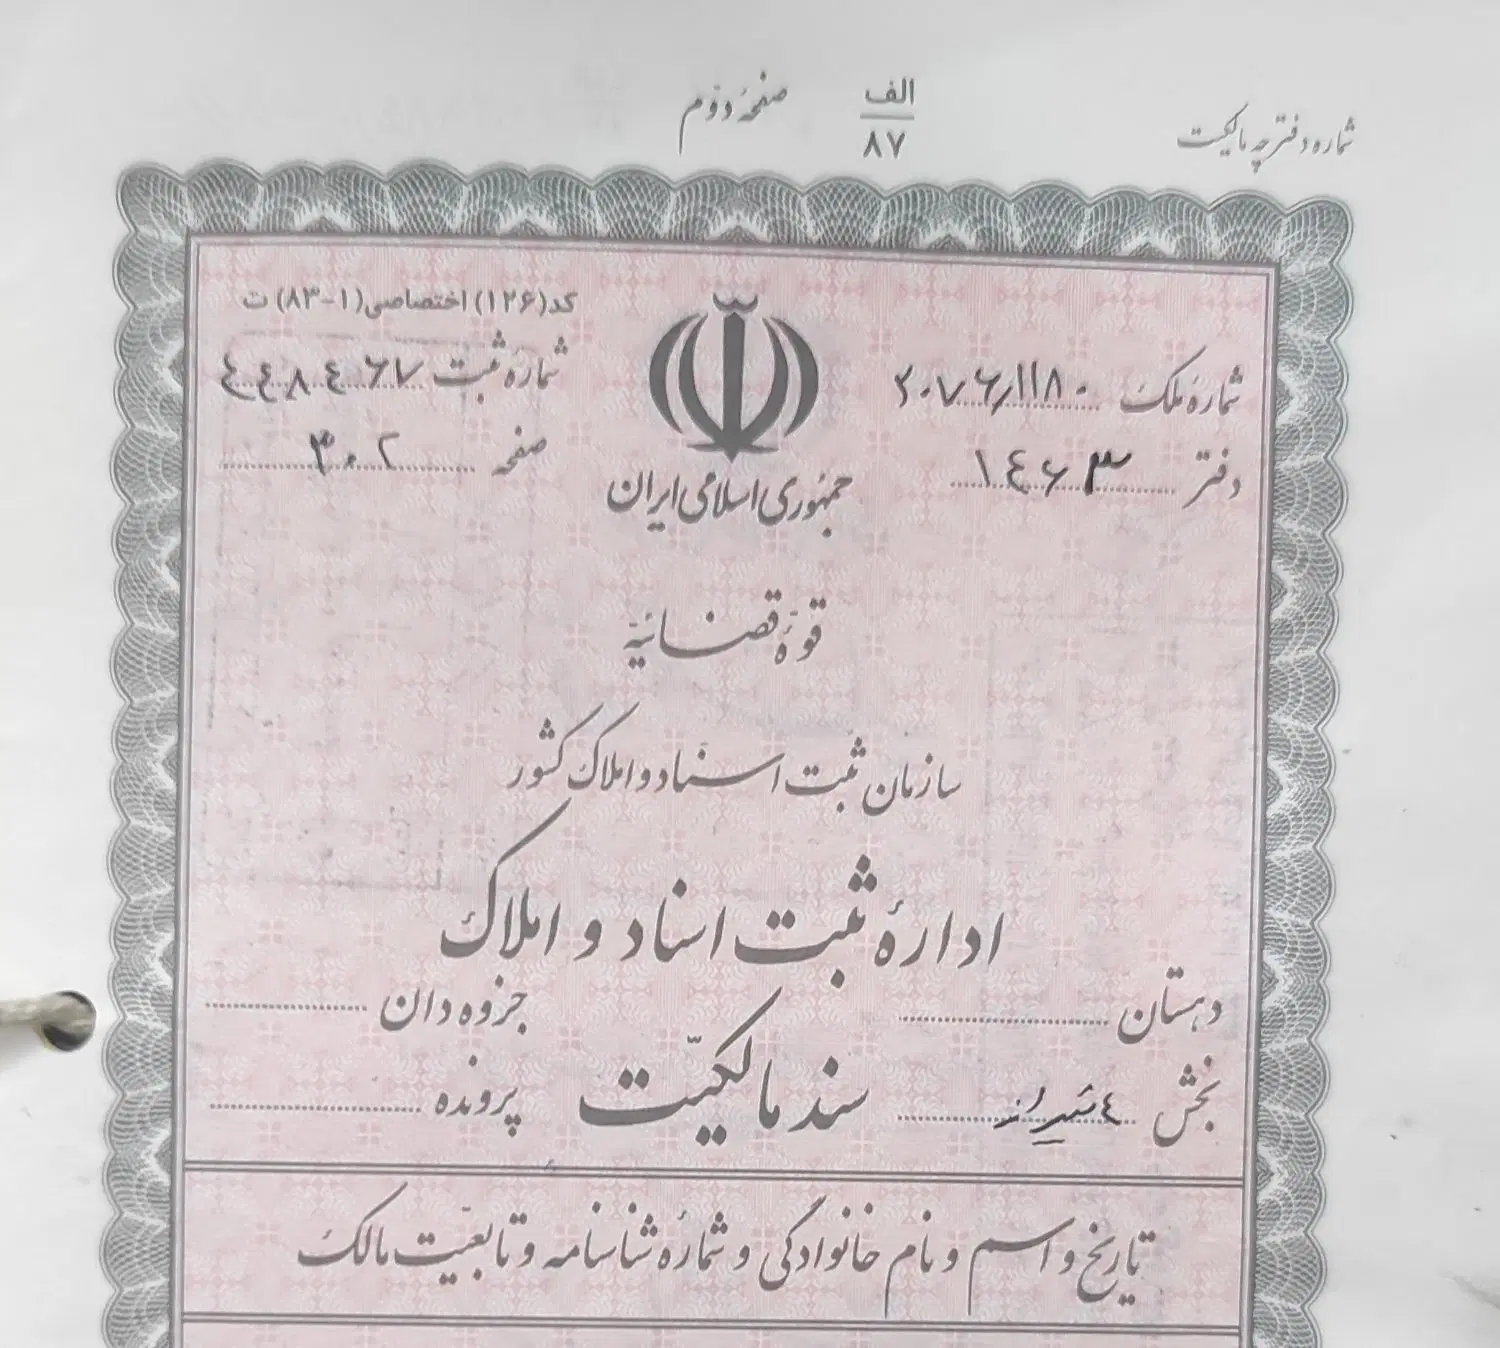 شماره دفترچه مالکیت
الف
۸۷
صفحهٔ دوّم
کد(۱۲۶) اختصاصی(۱-۸۳) ت
شمارهٔ ملک ۲۰۷۶/۱۱۸۰
شمارهٔ ثبت ۴۴۸۴۶۷
دفتر ۱۴۶۳
صفحه ۳۰۲
جمهوری اسلامی ایران
قوهٔ قضائیّه
سازمان ثبت اسناد و املاک کشور
ادارهٔ ثبت اسناد و املاک
دهستان
جزوه دان
بخش ۴ شیراز
سند مالکیّت
پرونده
تاریخ و اسم و نام خانوادگی و شمارهٔ شناسنامه و تابعیّت مالک